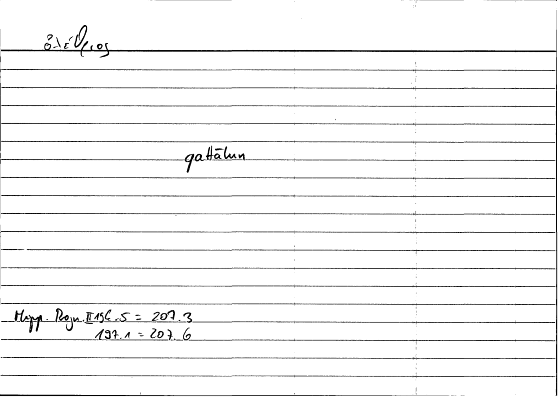 ὀλέθριος
qattālun
Hipp. Progn. II 196.5 = 207.3
197.1 = 207.6